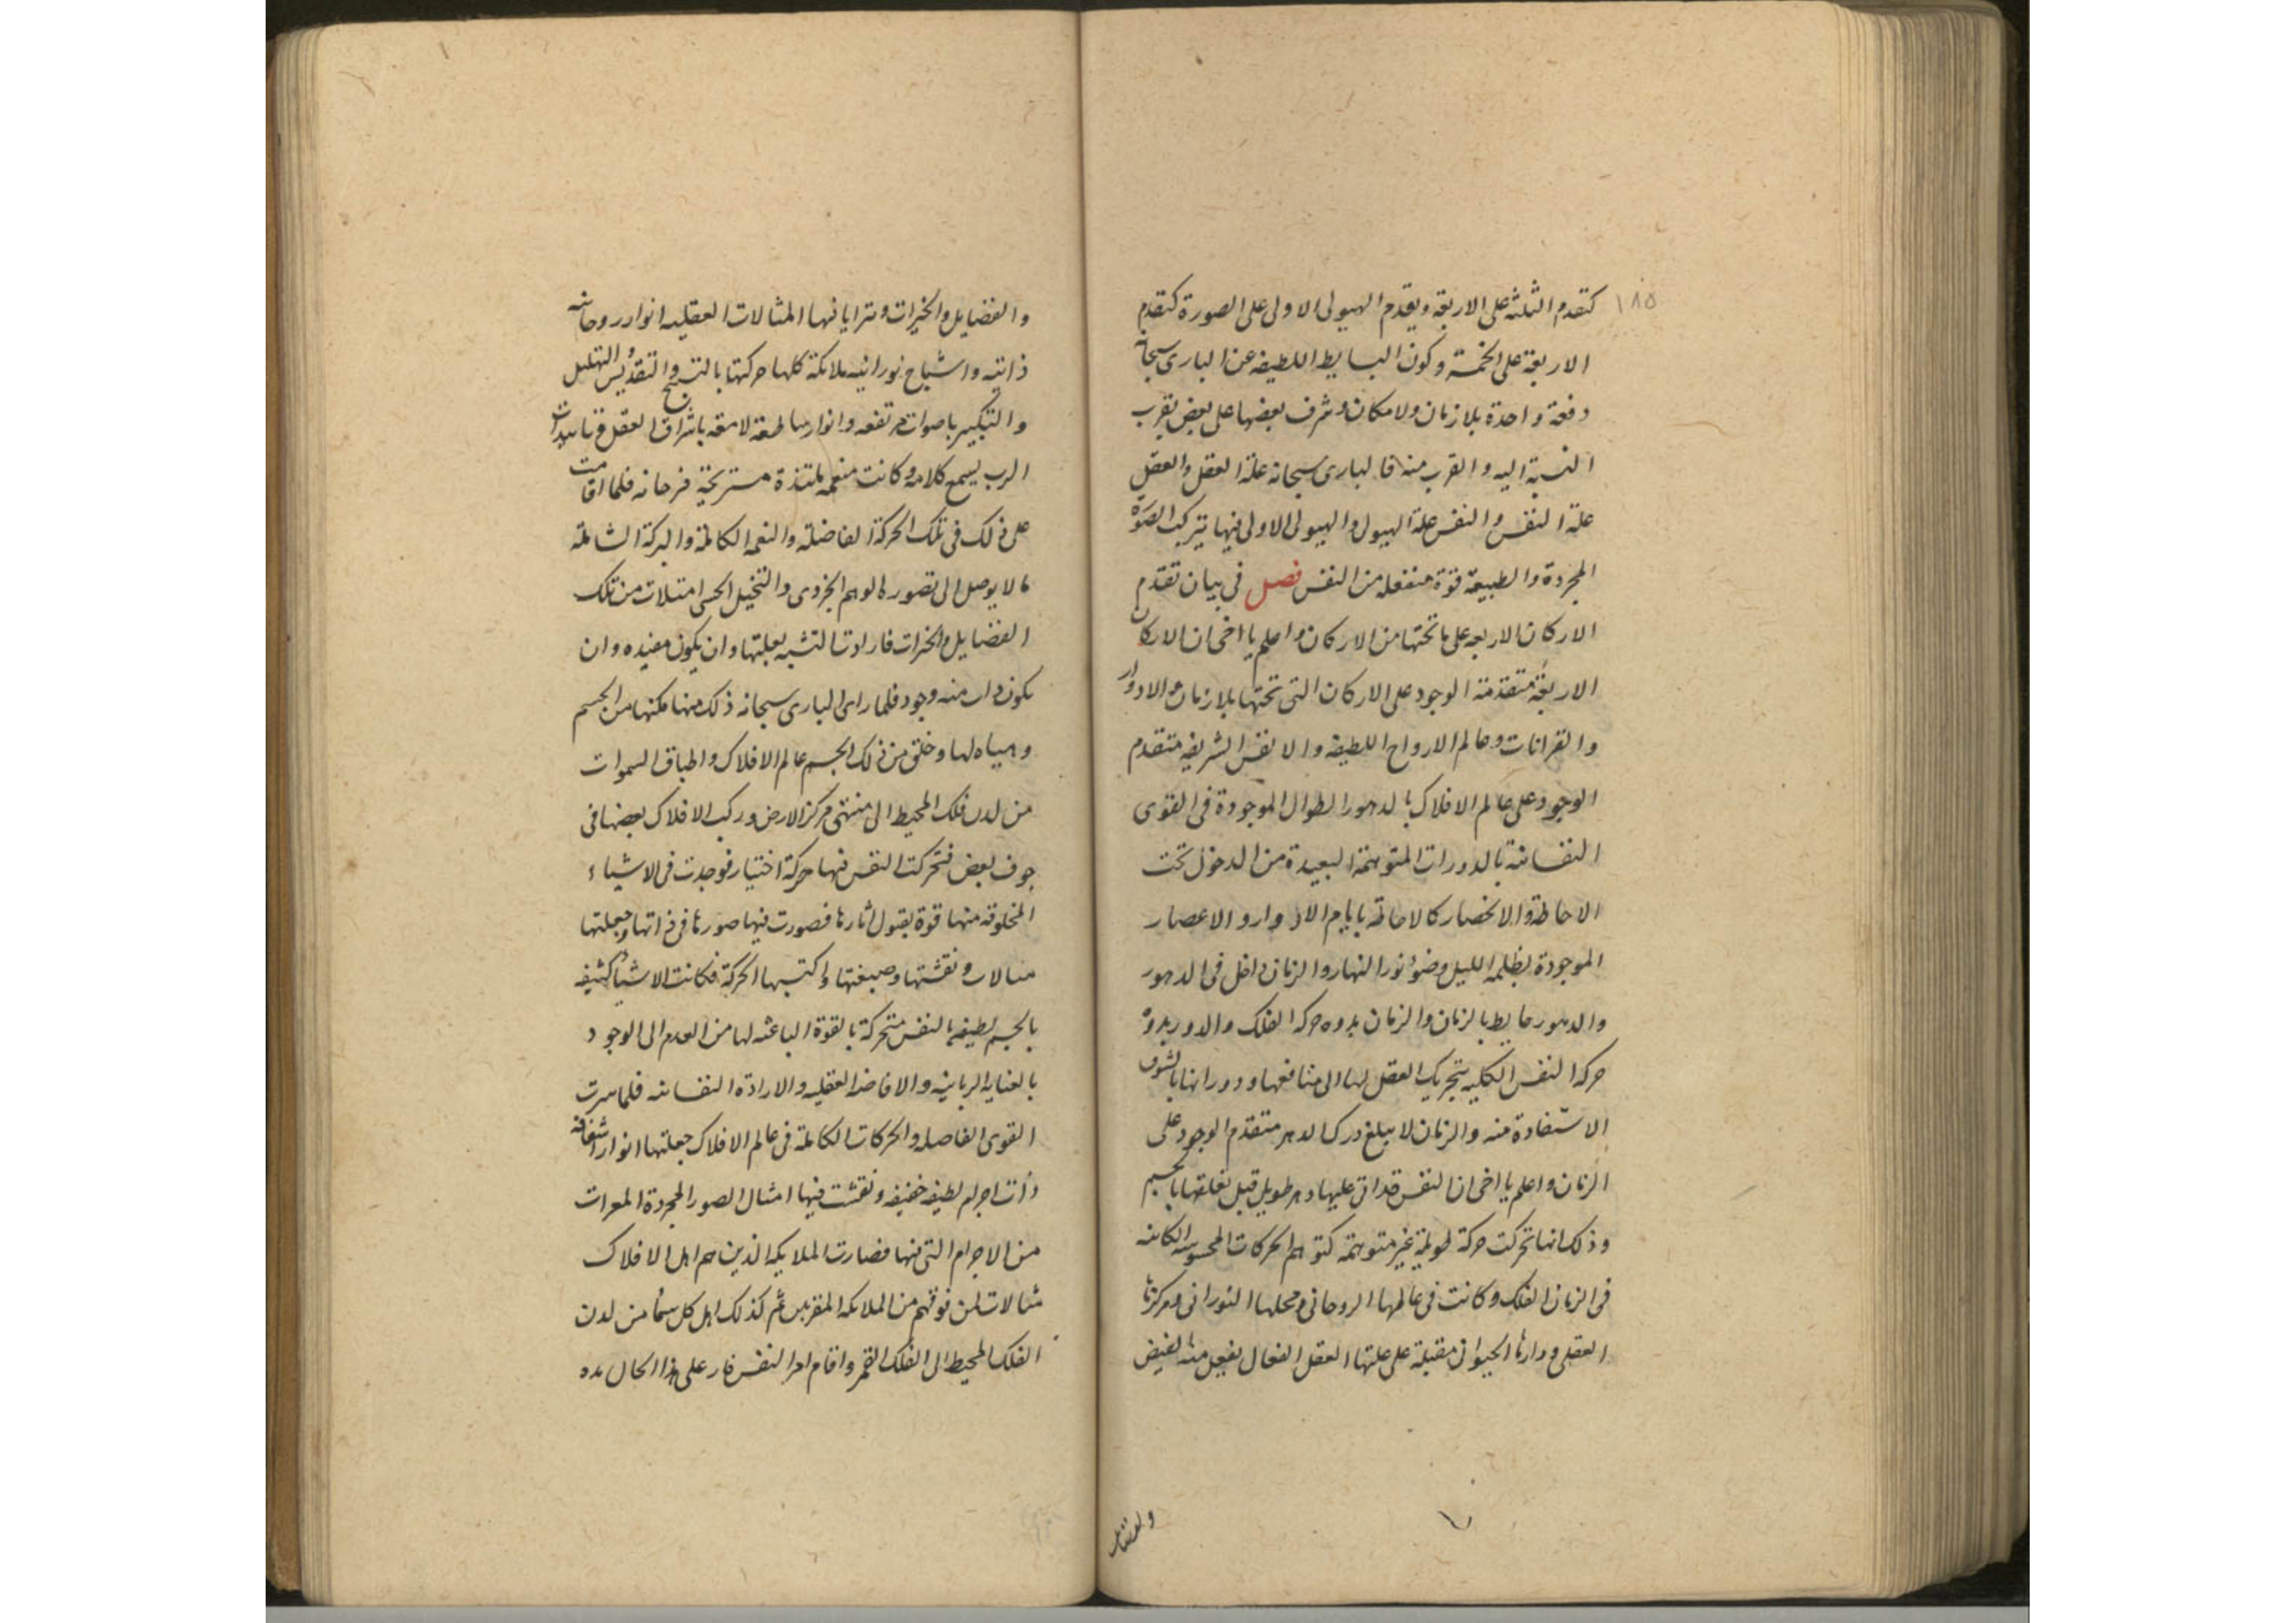 ١٨٥
كتقدم الثلثه على الاربعة ويقدم الهيولى الاولى على الصورة كتقدم
الاربعة على الخمسة وكون البسايط اللطيفه عن البارى سبحانه
دفعة واحدة بلا زمان ولا مكان وشرف بعضها على بعض بقرب
النسبة اليه والقرب منه فالبارى سبحانه علة العقل والعقل
علة النفس والنفس علة الهيولى والهيولى الاولى فيها يتركب الصورة
المجردة والطبيعة قوة منفعله من النفس فصل فى بيان تقدم
الاركان الاربعه على ما تحتها من الاركان واعلم يا اخى ان الاركان
الاربعة متقدمة الوجود على الاركان التى تحتها بالازمان والادوار
والقرانات وعالم الارواح اللطيفة والانفس الشريفه متقدم
الوجود على عالم الافلاك بالدهور الطوال الموجودة فى القوى
النفسانية بالدورات المتوهمة البعيدة من الدخول تحت
الاحاطة والانحصار كالاحاطة بايام الادوار والاعصار
الموجودة بظلمه الليل وضوء نور النهار والزمان داخل فى الدهور
والدهور حايط بالزمان والزمان بدوه حركه الفلك والدور بدوه
حركه النفس الكليه بتحريك العقل لها الى منافعها ودورانها بالشوق
الاستفادة منه والزمان لا يبلغ درك الدهر متقدم الوجود على
الزمان واعلم يا اخى ان النفس قد اتى عليها دهر طويل قبل تعلقها بالجسم
وذلك انها تحركت حركة طويلة غير متوهمة كتوهم الحركات المحسوسه الكاينه
فى الزمان الفلك وكانت فى عالمها الروحانى ومحلها النورانى ومركزها
العقلى ودارها الحيوانى مقبلة على علتها العقل الفعال تقبل منه الفيض
والفضايل
والفضايل والخيرات وترايا فيها المثالات العقليه انوار روحانيه
ذاتيه واشباح نورانيه ملائكة كلها حركتها بالتسبيح والتقديس والتهليل
والتكبير باصوات مرتفعه وانوار ساطعة لامعه باشراق العقل وتاييدات
الرب يسمع كلامه وكانت منعمه ملتذة مستريحة فرحانه فلما اقامت
على ذلك فى تلك الحركة الفاضلة والنعم الكاملة والبركة الشاملة
ما لا يوصل الى تصوره الوهم الجزوى والتخيل الحسى امتلات من تلك
الفضايل والخيرات فارادت التشبه بعلتها وان يكون مفيده وان
يكون ذات منه وجود فلما راى البارى سبحانه ذلك منها مكنها من الجسم
وهياه لها وخلق من ذلك الجسم عالم الافلاك واطباق السموات
من لدن فلك المحيط الى منتهى مركز الارض وركب الافلاك بعضها فى
جوف بعض فتحركت النفس فيها حركة اختيار فوجدت فى الاشياء
المخلوقه منها قوة بقبول اثارها فصورت فيها صورها فى ذاتها وجعلتها
مثالات ونقشتها وصبغتها واكتسبها الحركة فكانت الاشياء كثيفه
بالجسم لطيفه بالنفس متحركة بالقوة الباعثه لها من العدم الى الوجود
بالعنايه الربانيه والافاضه العقليه والارادة النفسانيه فلما سرت
القوى الفاضله والحركات الكاملة فى عالم الافلاك جعلتها انوار اشفافه
ذات اجرام لطيفه خفيفه ونقشت فيها امثال الصور المجردة المعرات
من الاجرام التى فيها فصارت الملايكه الذين هم اهل الافلاك
مثالات لمن فوقهم من الملايكه المقربين ثم كذلك اهل كل سماء من لدن
الفلك المحيط الى الفلك القمر واقام امر النفس على هذا الحال مده